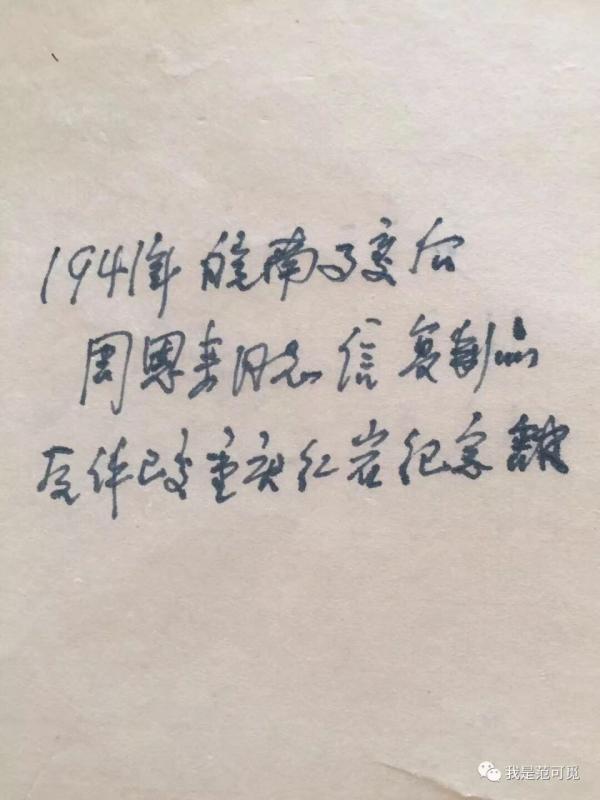 1941年皖南事变后
周恩来同志信复制品
原件已交重庆红岩纪念馆
我是范可觅